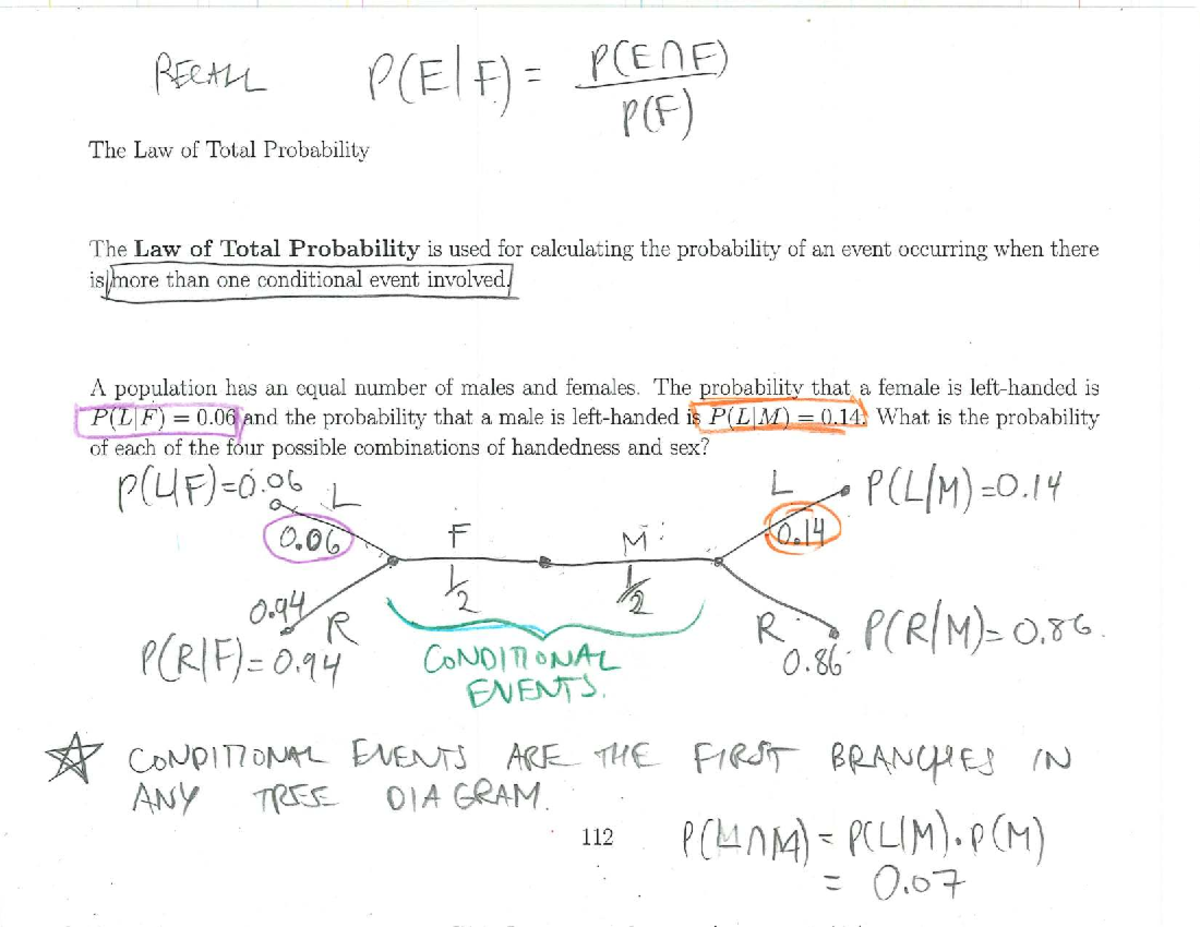 RECALL P(E|F) = P(E∩F) / P(F)
The Law of Total Probability
The Law of Total Probability is used for calculating the probability of an event occurring when there
is more than one conditional event involved.
A population has an equal number of males and females. The probability that a female is left-handed is
P(L|F) = 0.06 and the probability that a male is left-handed is P(L|M) = 0.14. What is the probability
of each of the four possible combinations of handedness and sex?
P(L|F)=0.06 L L P(L|M)=0.14
0.06 F M 0.14
1/2 1/2
0.94 R R P(R|M)=0.86.
P(R|F)=0.94 CONDITIONAL 0.86
EVENTS.
☆ CONDITIONAL EVENTS ARE THE FIRST BRANCHES IN
ANY TREE DIAGRAM.
112 P(L∩M) = P(L|M)·P(M)
= 0.07